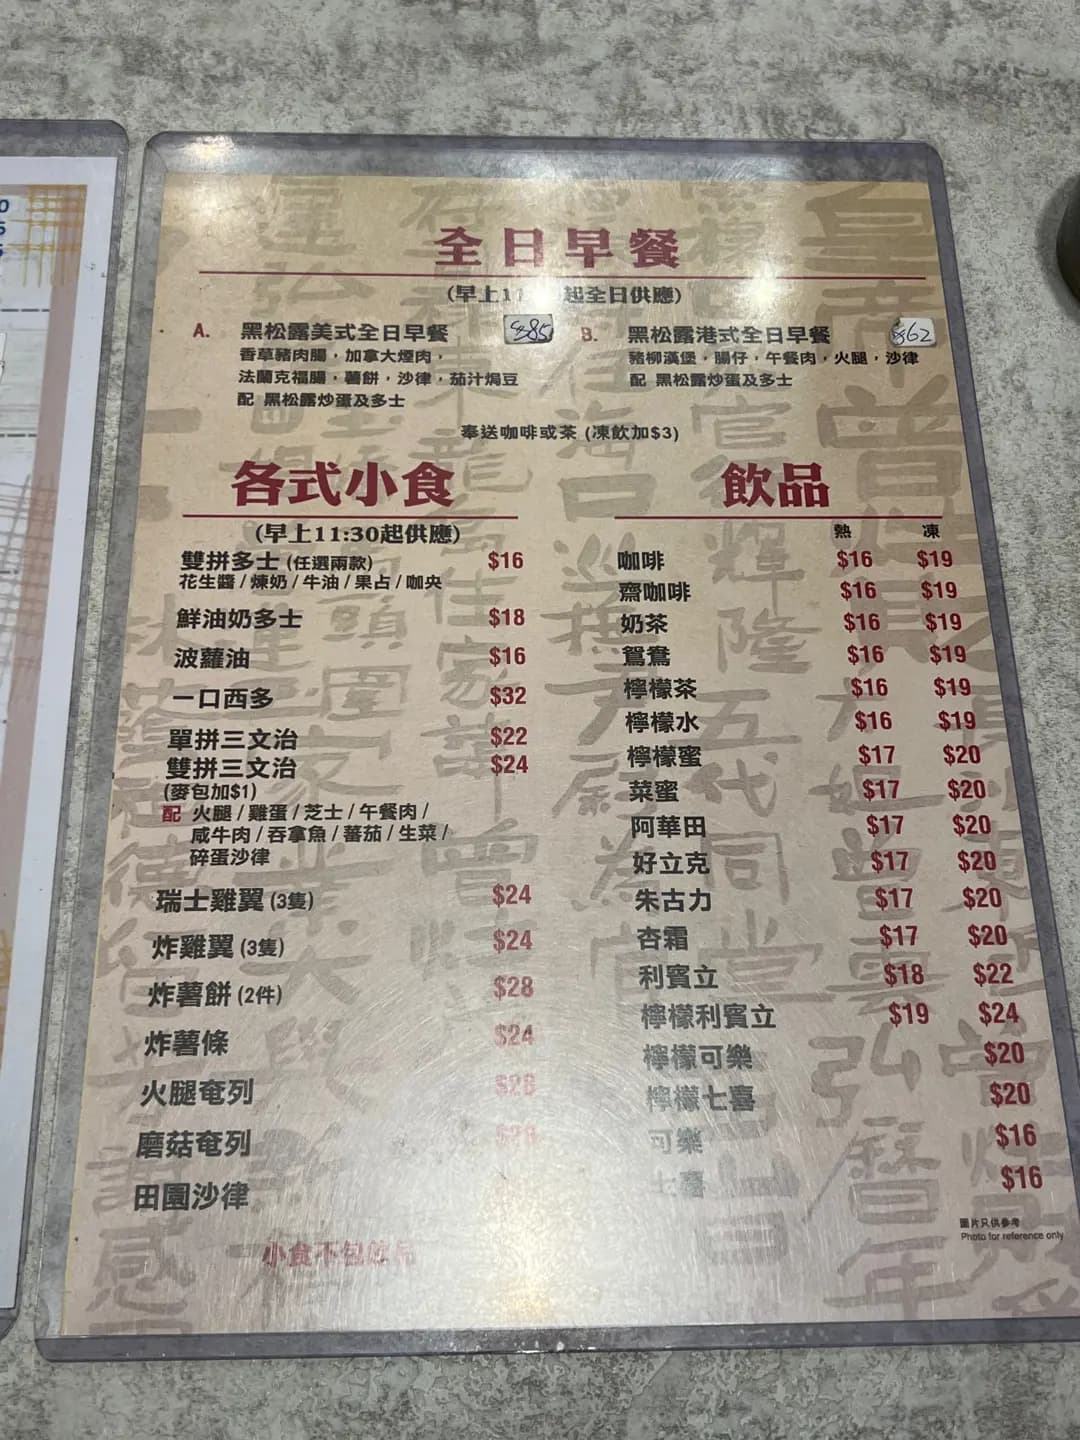 全日早餐
(早上11 起全日供應)
A. 黑松露美式全日早餐 $85
香草豬肉腸，加拿大煙肉，
法蘭克福腸，薯餅，沙律，茄汁焗豆
配 黑松露炒蛋及多士
B. 黑松露港式全日早餐 $62
豬柳漢堡，腸仔，午餐肉，火腿，沙律
配 黑松露炒蛋及多士
奉送咖啡或茶 (凍飲加$3)
各式小食
(早上11:30起供應)
雙拼多士 (任選兩款) $16
花生醬/煉奶/牛油/果占/咖央
鮮油奶多士 $18
波蘿油 $16
一口西多 $32
單拼三文治 $22
雙拼三文治 $24
(麥包加$1)
配 火腿/雞蛋/芝士/午餐肉/
咸牛肉/吞拿魚/蕃茄/生菜/
碎蛋沙律
瑞士雞翼 (3隻) $24
炸雞翼 (3隻) $24
炸薯餅 (2件) $28
炸薯條 $24
火腿奄列 $28
磨菇奄列
田園沙律
小食不包飲品
飲品
熱 凍
咖啡 $16 $19
齋咖啡 $16 $19
奶茶 $16 $19
鴛鴦 $16 $19
檸檬茶 $16 $19
檸檬水 $16 $19
檸檬蜜 $17 $20
菜蜜 $17 $20
阿華田 $17 $20
好立克 $17 $20
朱古力 $17 $20
杏霜 $17 $20
利賓立 $18 $22
檸檬利賓立 $19 $24
檸檬可樂 $20
檸檬七喜 $20
可樂 $16
七喜 $16
圖片只供參考
Photo for reference only